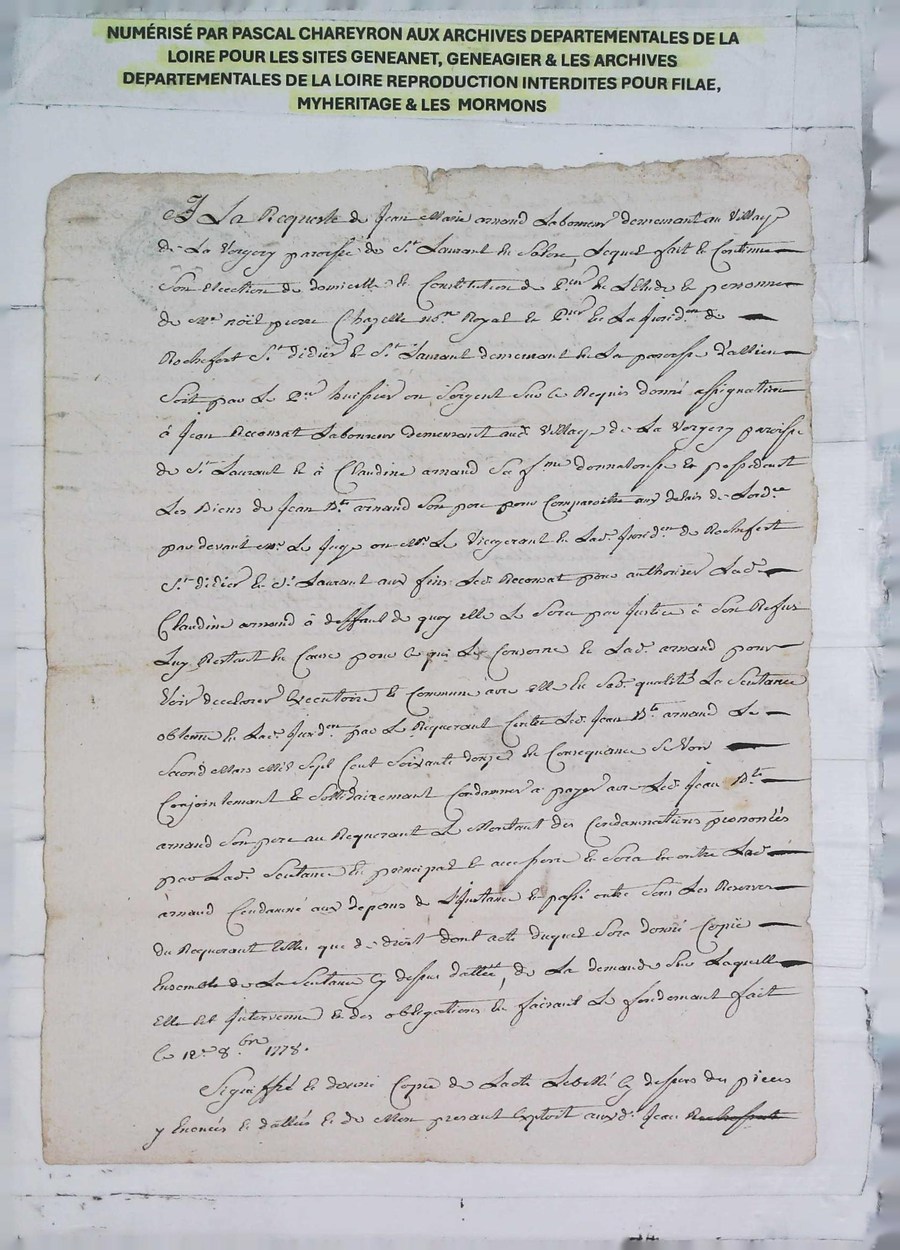 NUMÉRISÉ PAR PASCAL CHAREYRON AUX ARCHIVES DEPARTEMENTALES DE LA
LOIRE POUR LES SITES GENEANET, GENEAGIER & LES ARCHIVES
DEPARTEMENTALES DE LA LOIRE REPRODUCTION INTERDITES POUR FILAE,
MYHERITAGE & LES MORMONS
A La Requeste de Jean Marie arnaud Laboureur demeurant au Village
de La Vergery paroisse de St Laurant en Solore, Lequel fait et Continue
Son election de domicille et Constitution de Pur en L'etude et personne
de Mre noël pierre Chazelle nore Royal et Pur en La Juridon de
Rochefort St didier et St Laurant demeurant en La paroisse d'allieu
Soit par Le Per huissier ou Sergent Sur ce Requis donné assignation
à Jean Recorsat Laboureur demeurant aud. Village de La Vergery paroisse
de St Laurant et à Claudine arnaud Sa fme donnatairesse et possedant
Les Biens de Jean Bte arnaud Son pere pour Comparoitre aux delais de Lordce
par devant Mr Le Juge ou Mr Le Vicegerant en Lad. Juridon de Rochefort
St didier et St Laurant aux fins Led. Recorsat pour authoriser Lad.
Claudine arnaud à deffaut de quoy elle Le Sera par Justice à Son Refus
Luy Restant en Cause pour ce qui Le Conserne et Lad. arnaud pour
Voir declarer Executoire et Commune avec elle en Sad. qualité La Sentance
obtenue en Lad. Juridon par Le Requerant Contre Led. Jean Bte arnaud Le
Second Mars Mil Sept Cent Soixante donze en Consequance Se Voir
Conjointement et Sollidairement Condamner a payer avec Led. Jean Bte
arnaud Son pere au Requerant Le Montant des Condamnations prononcés
par Lad. Sentance en principal et accessoire et Sera en outre Lad.
arnaud Condamné aux depens de L'Instance et passé outre Sous Les Reserves
du Requerant telles que de droit dont acte duquel Sera donné Copie
Ensemble de La Sentance Cy dessus dattée, de La demande Sur Laquelle
Elle est Intervenue et des obligations en faisant Le fondemant fait
le 12e 8.bre 1778.
Signiffié et donné Copie de Lacte Libellé Cy dessus des pieces
y Enoncés et dattés et de Mon presant Exploit auxd. Jean